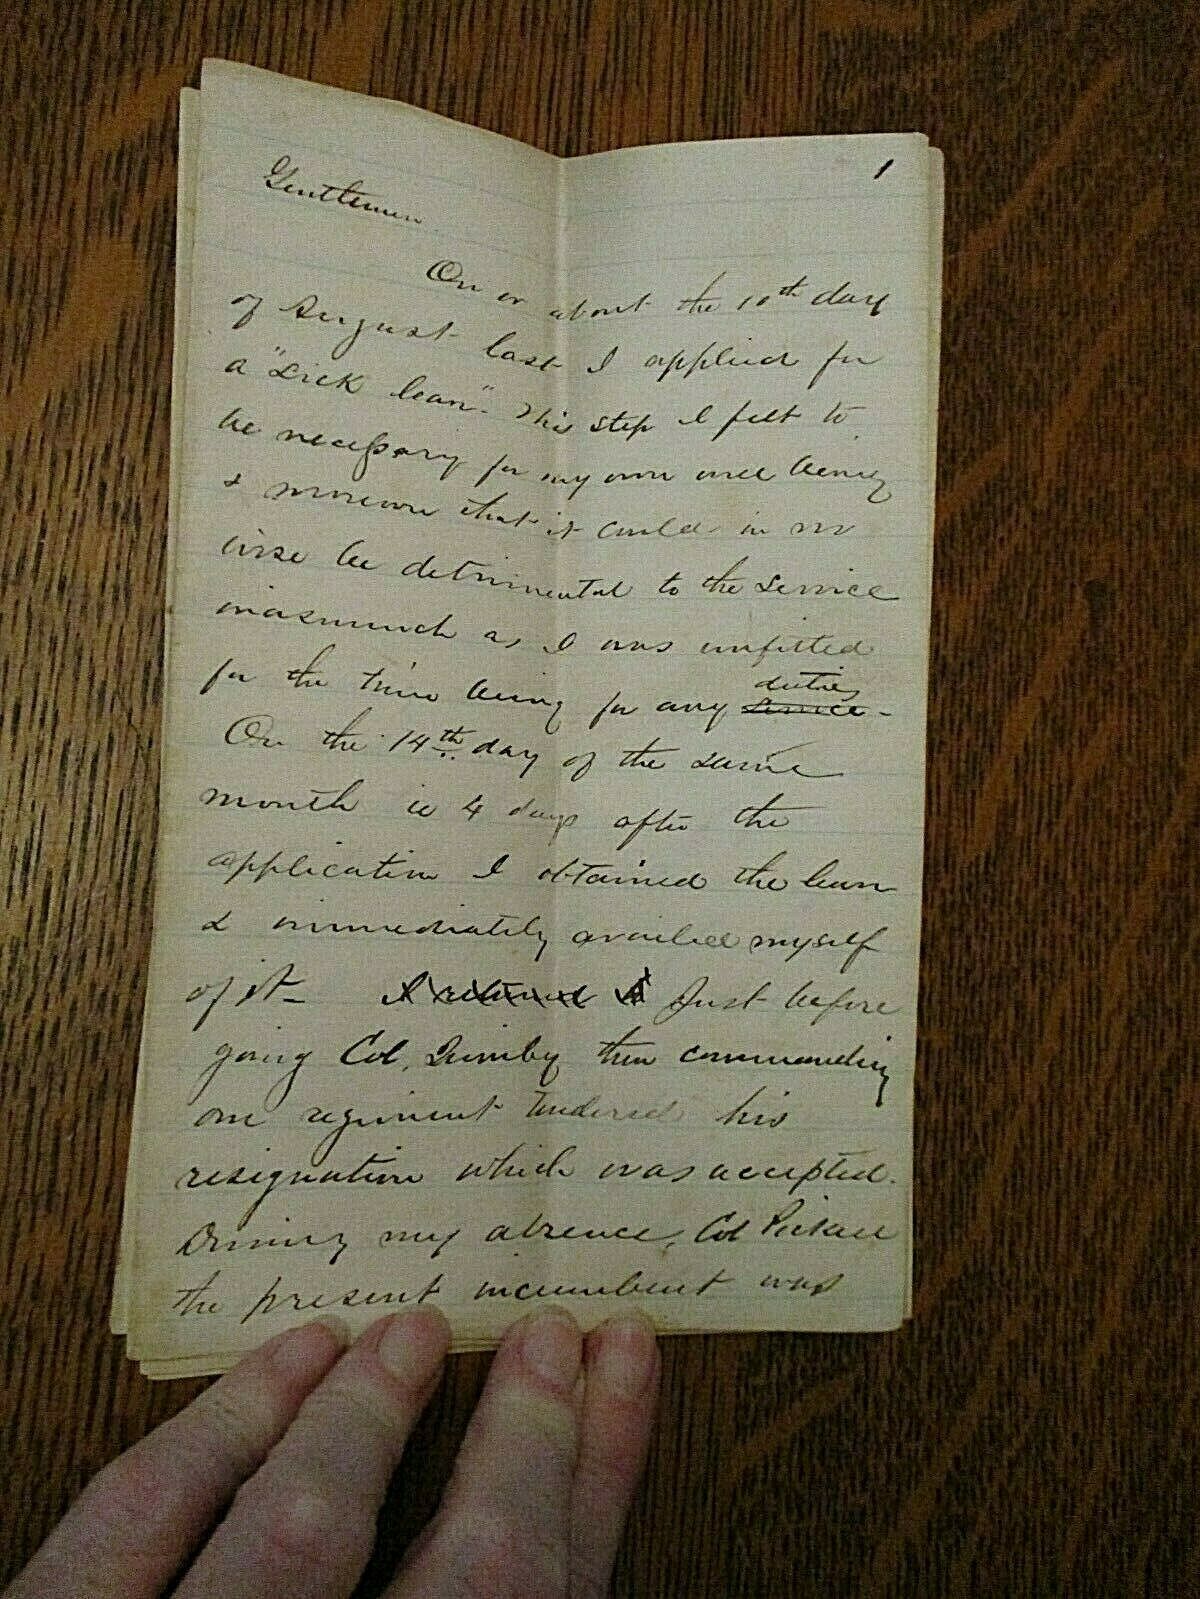 1
Gentlemen
On or about the 10th day
of August last I applied for
a "Sick leave". This step I felt to
be necessary for my own well being
& moreover that it could in no
wise be detrimental to the service
inasmuch as I was unfitted
for the time being for any ~~service~~ duties -
On the 14th day of the same
month ie 4 days after the
application I obtained the leave
& immediately availed myself
of it - ~~I returned~~ Just before
going Col. Quimby then commanding
our regiment tendered his
resignation which was accepted.
During my absence, Col
the present incumbent was